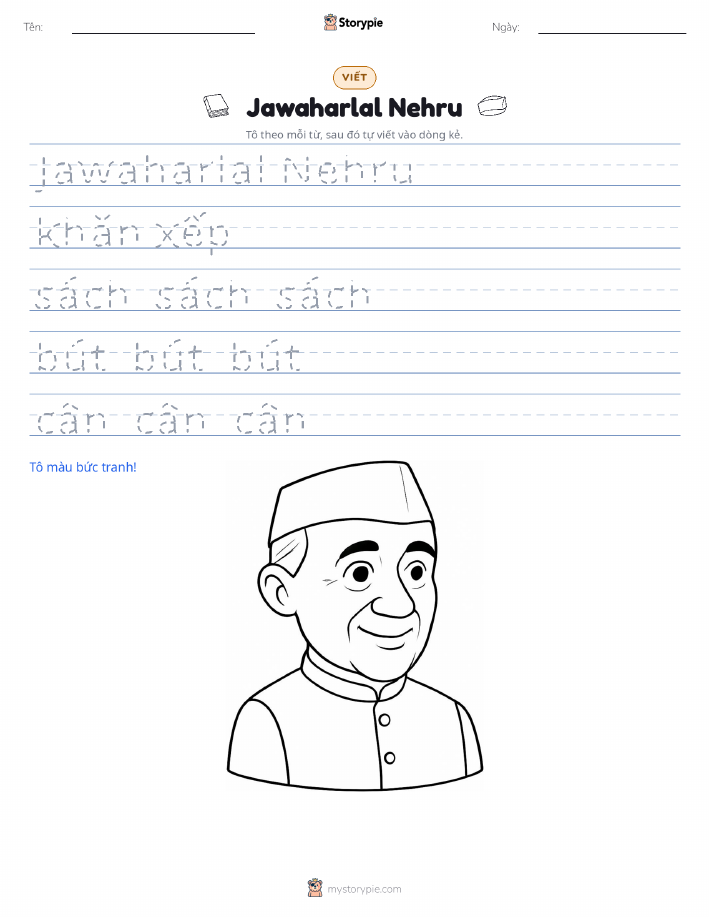 Tên:
Storypie
Ngày:
VIẾT
Jawaharlal Nehru
Tô theo mỗi từ, sau đó tự viết vào dòng kẻ.
Jawaharlal Nehru
khăn xếp
sách sách sách
bút bút bút
cân cân cân
Tô màu bức tranh!
mystorypie.com